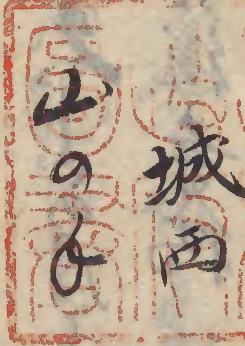 城西
山の手